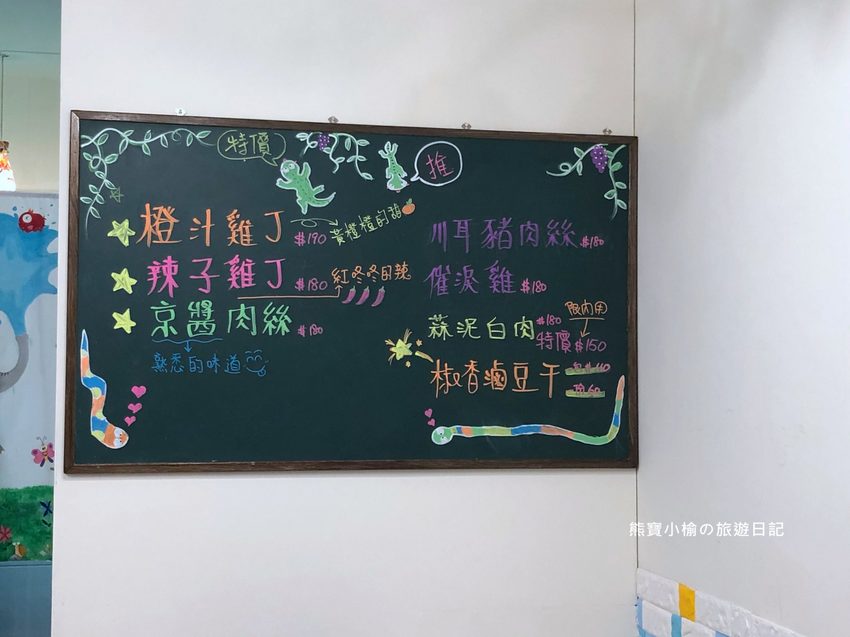 特價
橙汁雞丁 $190 黃橙橙的甜
辣子雞丁 $180 紅咚咚的辣
京醬肉絲 $180
熟悉的味道
推
川耳豬肉絲 $180
催淚雞 $180
限內用
蒜泥白肉 $180
特價$150
椒香滷豆干
熊寶小榆の旅遊日記